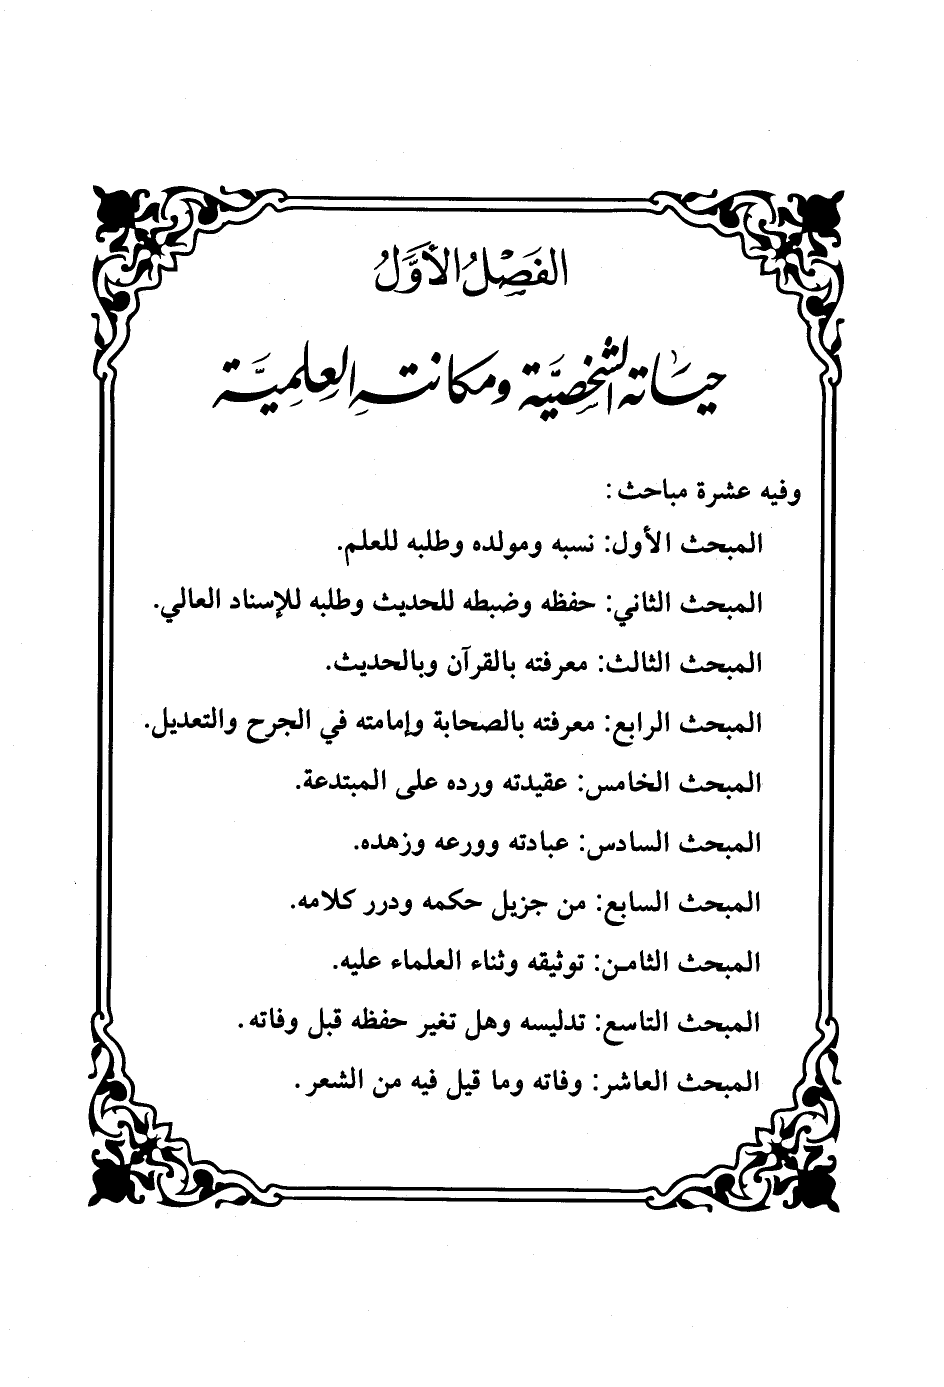 الفَصْلُ الأوَّلُ
حياته الشخصيَّة ومكانته العِلميَّة
وفيه عشرة مباحث:
المبحث الأول: نسبه ومولده وطلبه للعلم.
المبحث الثاني: حفظه وضبطه للحديث وطلبه للإسناد العالي.
المبحث الثالث: معرفته بالقرآن وبالحديث.
المبحث الرابع: معرفته بالصحابة وإمامته في الجرح والتعديل.
المبحث الخامس: عقيدته ورده على المبتدعة.
المبحث السادس: عبادته وورعه وزهده.
المبحث السابع: من جزيل حكمه ودرر كلامه.
المبحث الثامن: توثيقه وثناء العلماء عليه.
المبحث التاسع: تدليسه وهل تغير حفظه قبل وفاته.
المبحث العاشر: وفاته وما قيل فيه من الشعر.